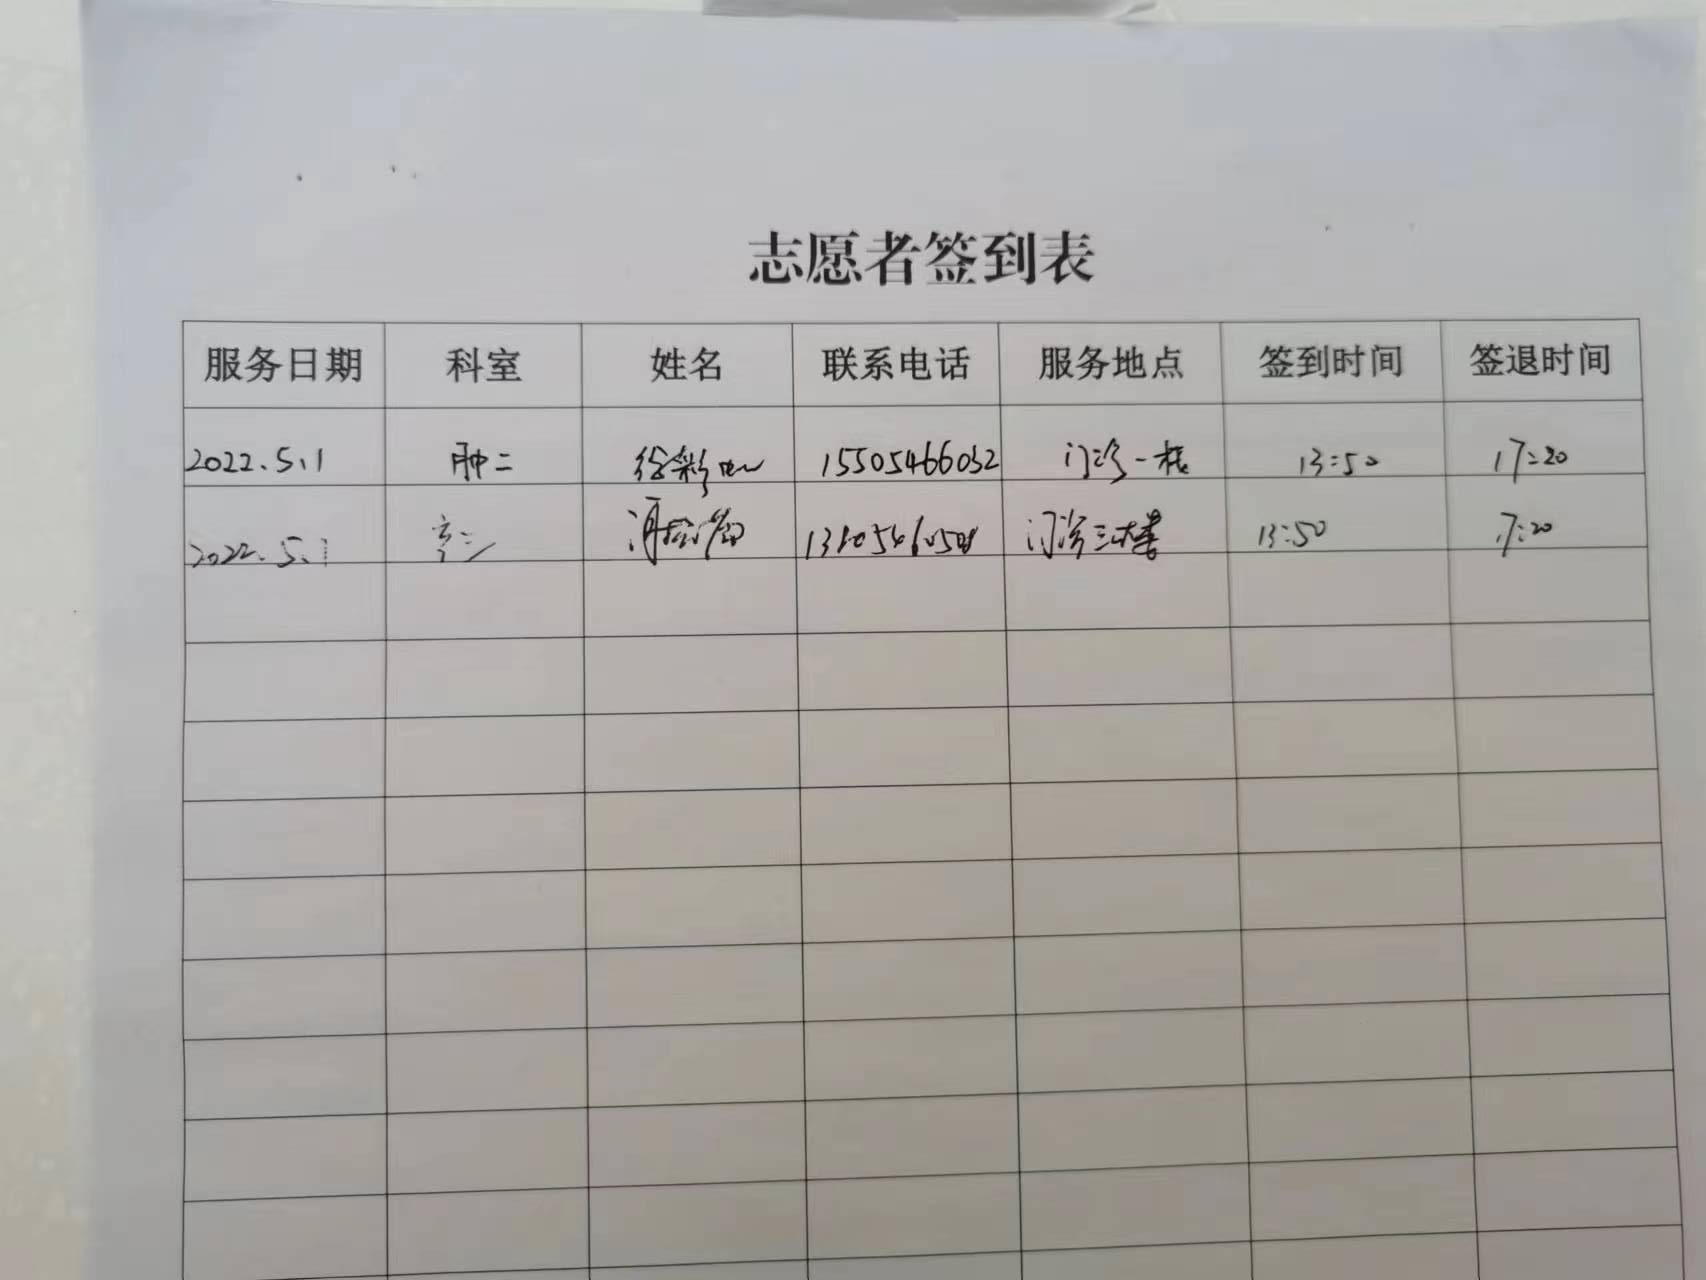 志愿者签到表
服务日期 科室 姓名 联系电话 服务地点 签到时间 签退时间
2022.5.1 肿二 徐彩 15505466032 门诊一楼 13:50 17:20
2022.5.1 门诊三楼 13:50 17:20